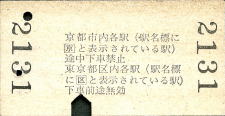 2131
京都市内各駅(駅名標に
京と表示されている駅)
途中下車禁止
東京都区内各駅(駅名標
に区と表示されている駅)
下車前途無効
2131